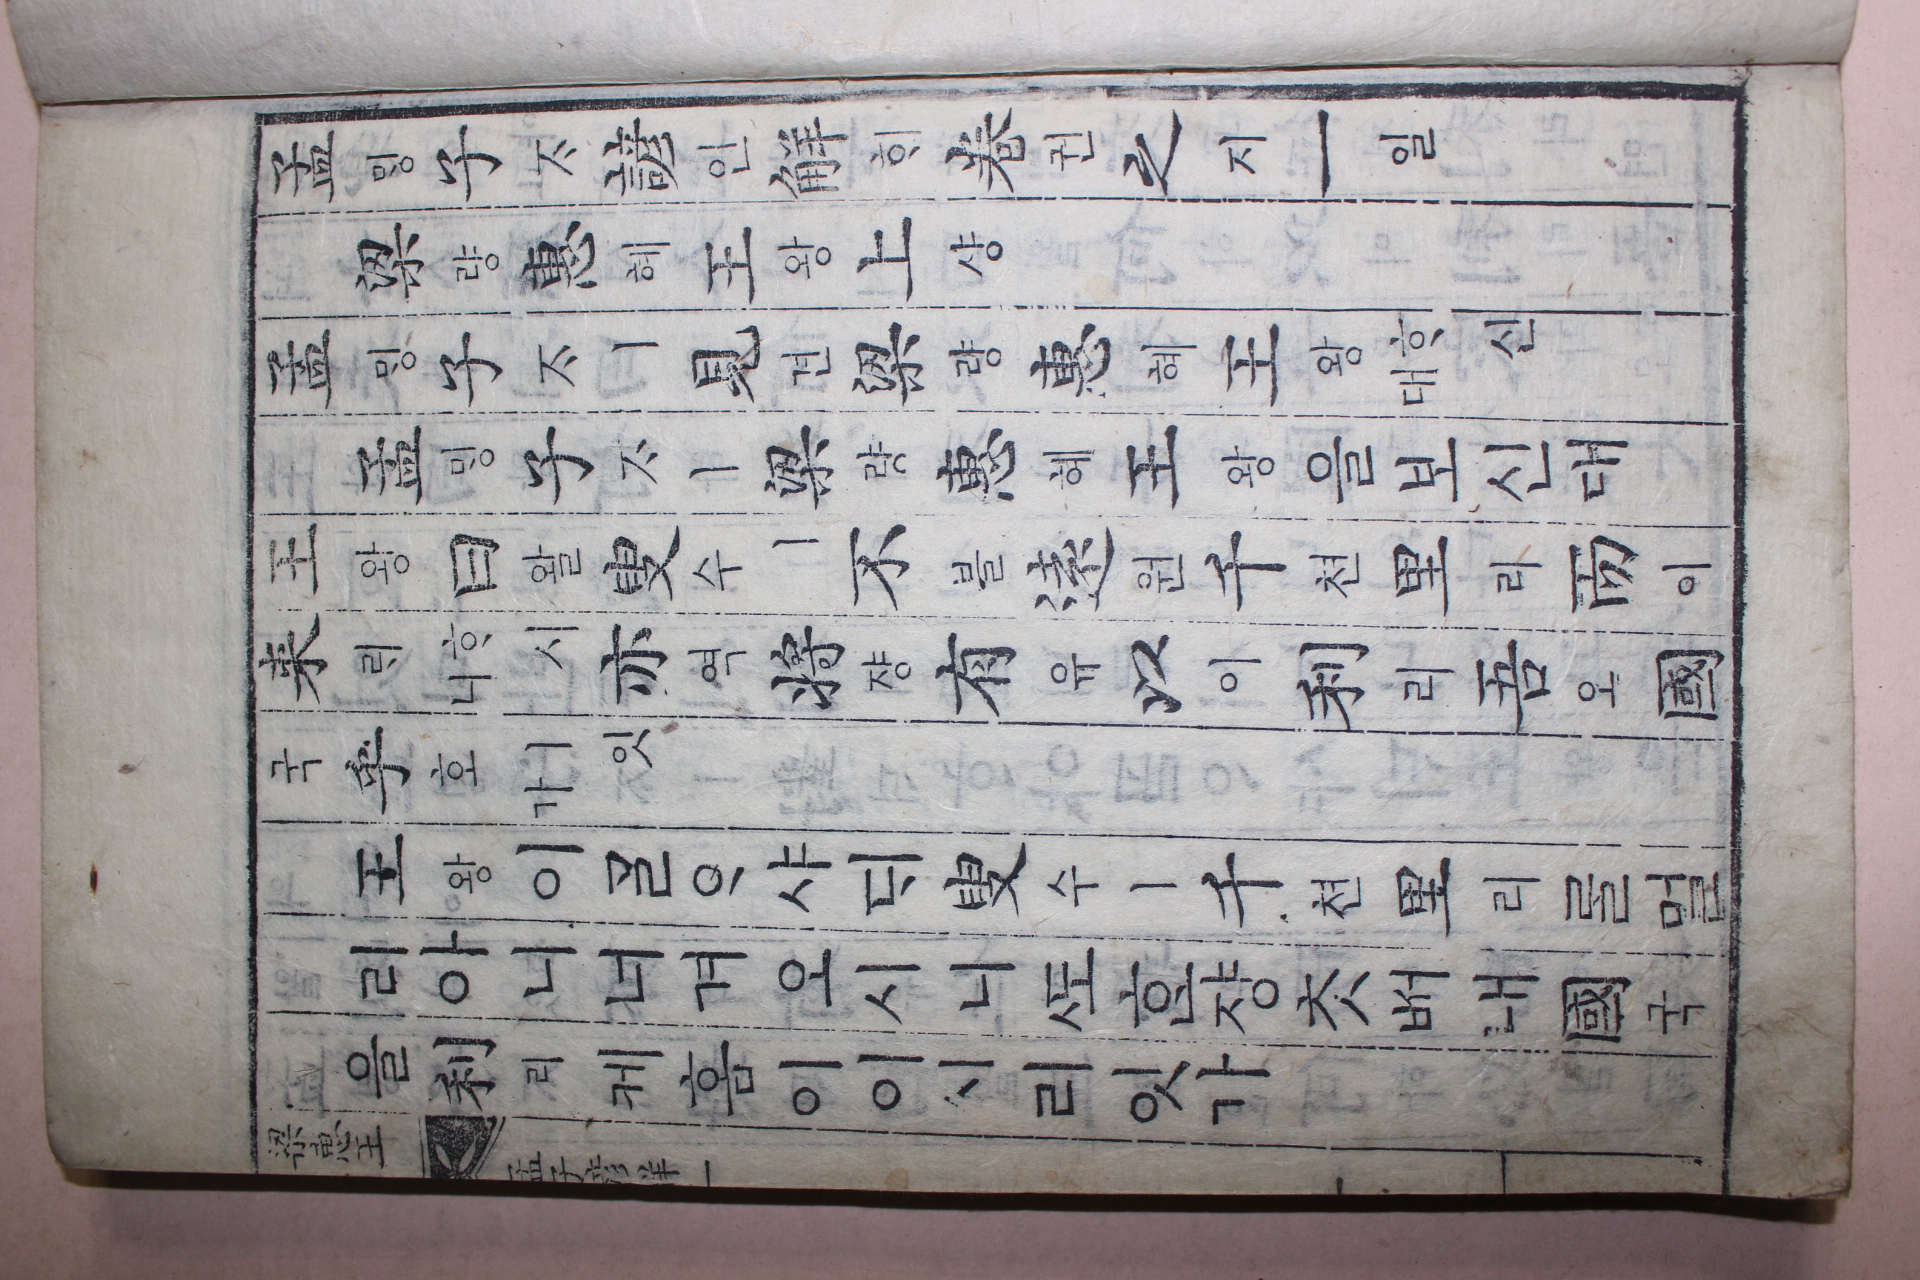 孟ᄆᆡᆼ子ᄌᆞ諺언解ᄒᆡ卷권之지一일
梁량惠혜王왕上샹
孟ᄆᆡᆼ子ᄌᆞㅣ見견梁량惠혜王왕ᄒᆞ신대
孟ᄆᆡᆼ子ᄌᆞㅣ梁량惠혜王왕을보신대
王왕曰왈叟수ㅣ不블遠원千쳔里리而이
來ᄅᆡᄒᆞ시니亦역將쟝有유以이利리吾오國
국乎호ㅣ잇가
王왕이ᄀᆞᆯᄋᆞ샤ᄃᆡ叟수ㅣ千쳔里리를멀
리아니너겨오시니ᄯᅩᄒᆞᆫ쟝ᄎᆞᆺᄡᅥ내國국
을利리케홈이이시리잇가
梁惠王 孟子諺解一